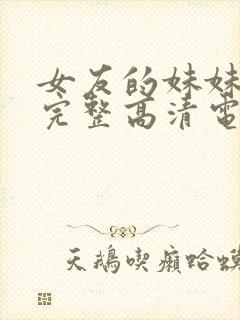 女友的妹妹
完整高清電
天鵝喫癩蛤蟆